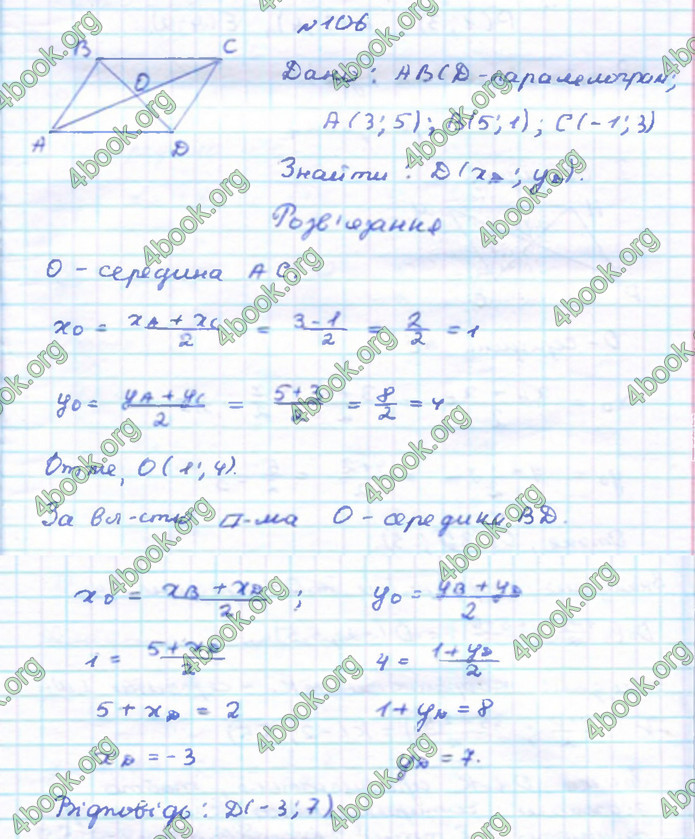 №106
B C
O
A D
Дано: ABCD - паралелограм;
A(3; 5); B(5; 1); C(-1; 3)
Знайти: D(x_D; y_D).
Розв'язання
O - середина AC.
x_O = (x_A + x_C)/2 = (3-1)/2 = 2/2 = 1
y_O = (y_A + y_C)/2 = (5+3)/2 = 8/2 = 4
Отже, O(1; 4).
За вл-стю п-ма O - середина BD.
x_O = (x_B + x_D)/2 ; y_O = (y_B + y_D)/2
1 = (5+x_D)/2 4 = (1+y_D)/2
5 + x_D = 2 1 + y_D = 8
x_D = -3 y_D = 7.
Відповідь: D(-3; 7)
4book.org